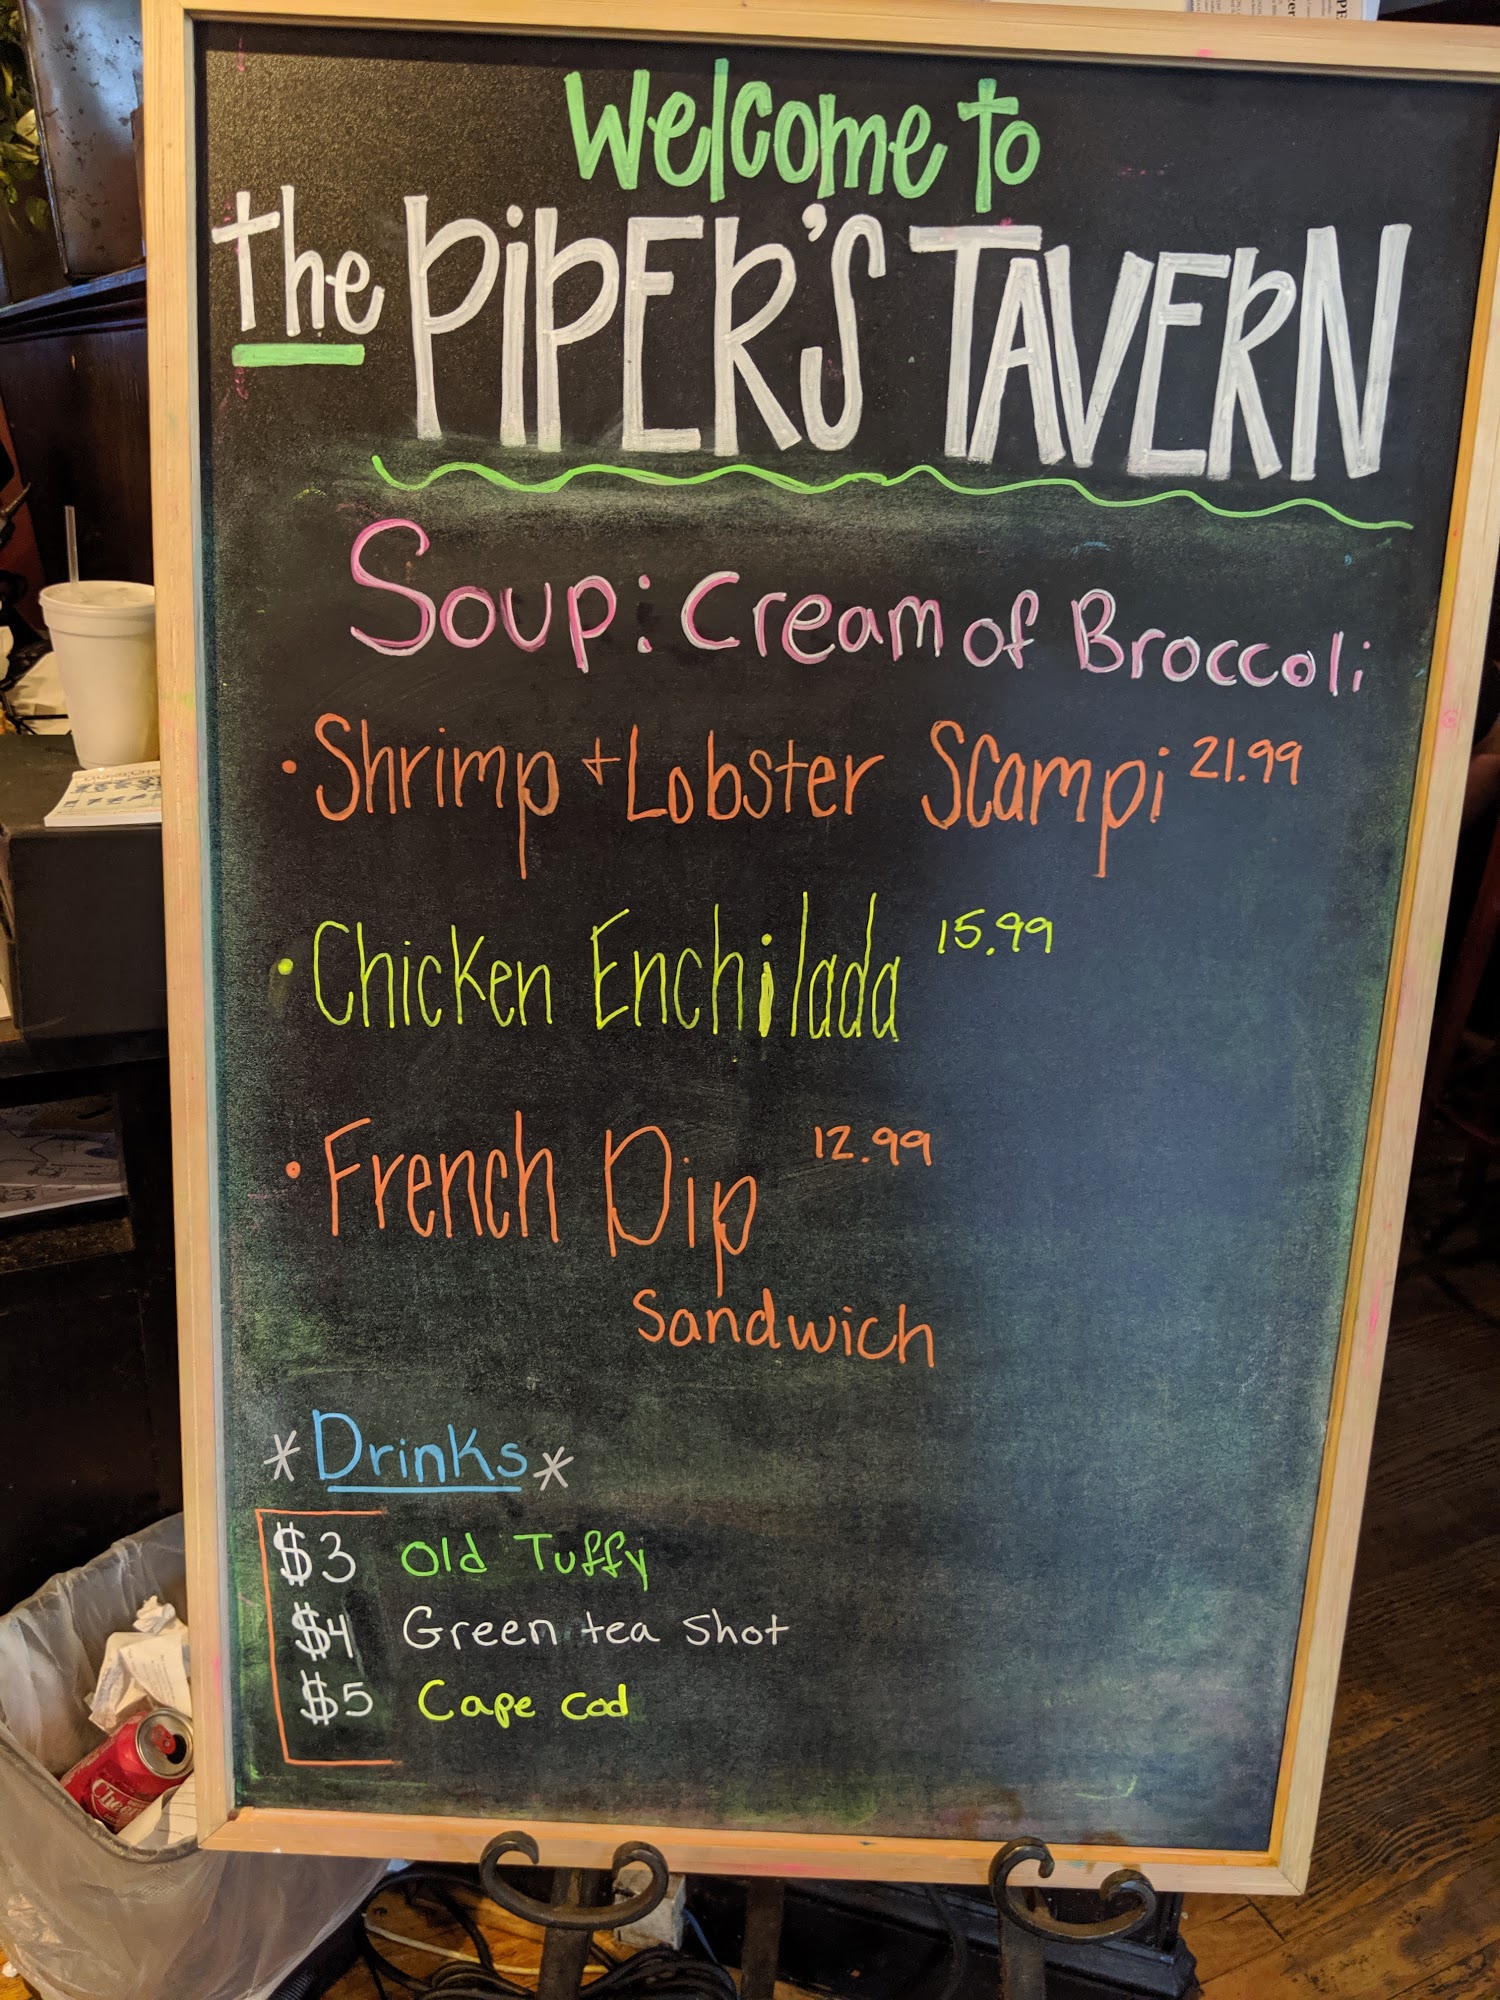 Welcome to
the PiPER'S TAVERN
Soup: Cream of Broccoli
• Shrimp + Lobster Scampi 21.99
• Chicken Enchilada 15.99
• French Dip 12.99
Sandwich
*Drinks*
$3 Old Tuffy
$4 Green tea shot
$5 Cape Cod